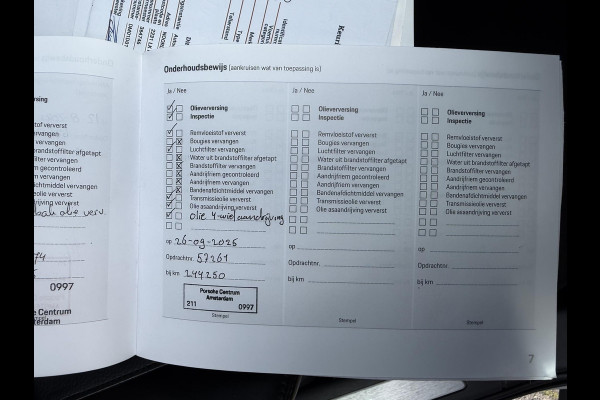 Onderhoudsbewijs (aankruisen wat van toepassing is)
Ja / Nee
Olieverversing
Inspectie
Remvloeistof ververst
Bougies vervangen
Luchtfilter vervangen
Water uit brandstoffilter afgetapt
Brandstoffilter vervangen
Aandrijfriem gecontroleerd
Aandrijfriem vervangen
Bandenafdichtmiddel vervangen
Transmissieolie ververst
Olie asaandrijving ververst
olie 4-wiel aandrijving
op 26-09-2025
Opdrachtnr. 57261
bij km 244250
Porsche Centrum
Amsterdam
211 0997
Stempel
Ja / Nee
Olieverversing
Inspectie
Remvloeistof ververst
Bougies vervangen
Luchtfilter vervangen
Water uit brandstoffilter afgetapt
Brandstoffilter vervangen
Aandrijfriem gecontroleerd
Aandrijfriem vervangen
Bandenafdichtmiddel vervangen
Transmissieolie ververst
Olie asaandrijving ververst
op
Opdrachtnr.
bij km
Stempel
Ja / Nee
Olieverversing
Inspectie
Remvloeistof ververst
Bougies vervangen
Luchtfilter vervangen
Water uit brandstoffilter afgetapt
Brandstoffilter vervangen
Aandrijfriem gecontroleerd
Aandrijfriem vervangen
Bandenafdichtmiddel vervangen
Transmissieolie ververst
Olie asaandrijving ververst
op
Opdrachtnr.
bij km
Stempel
7
0997